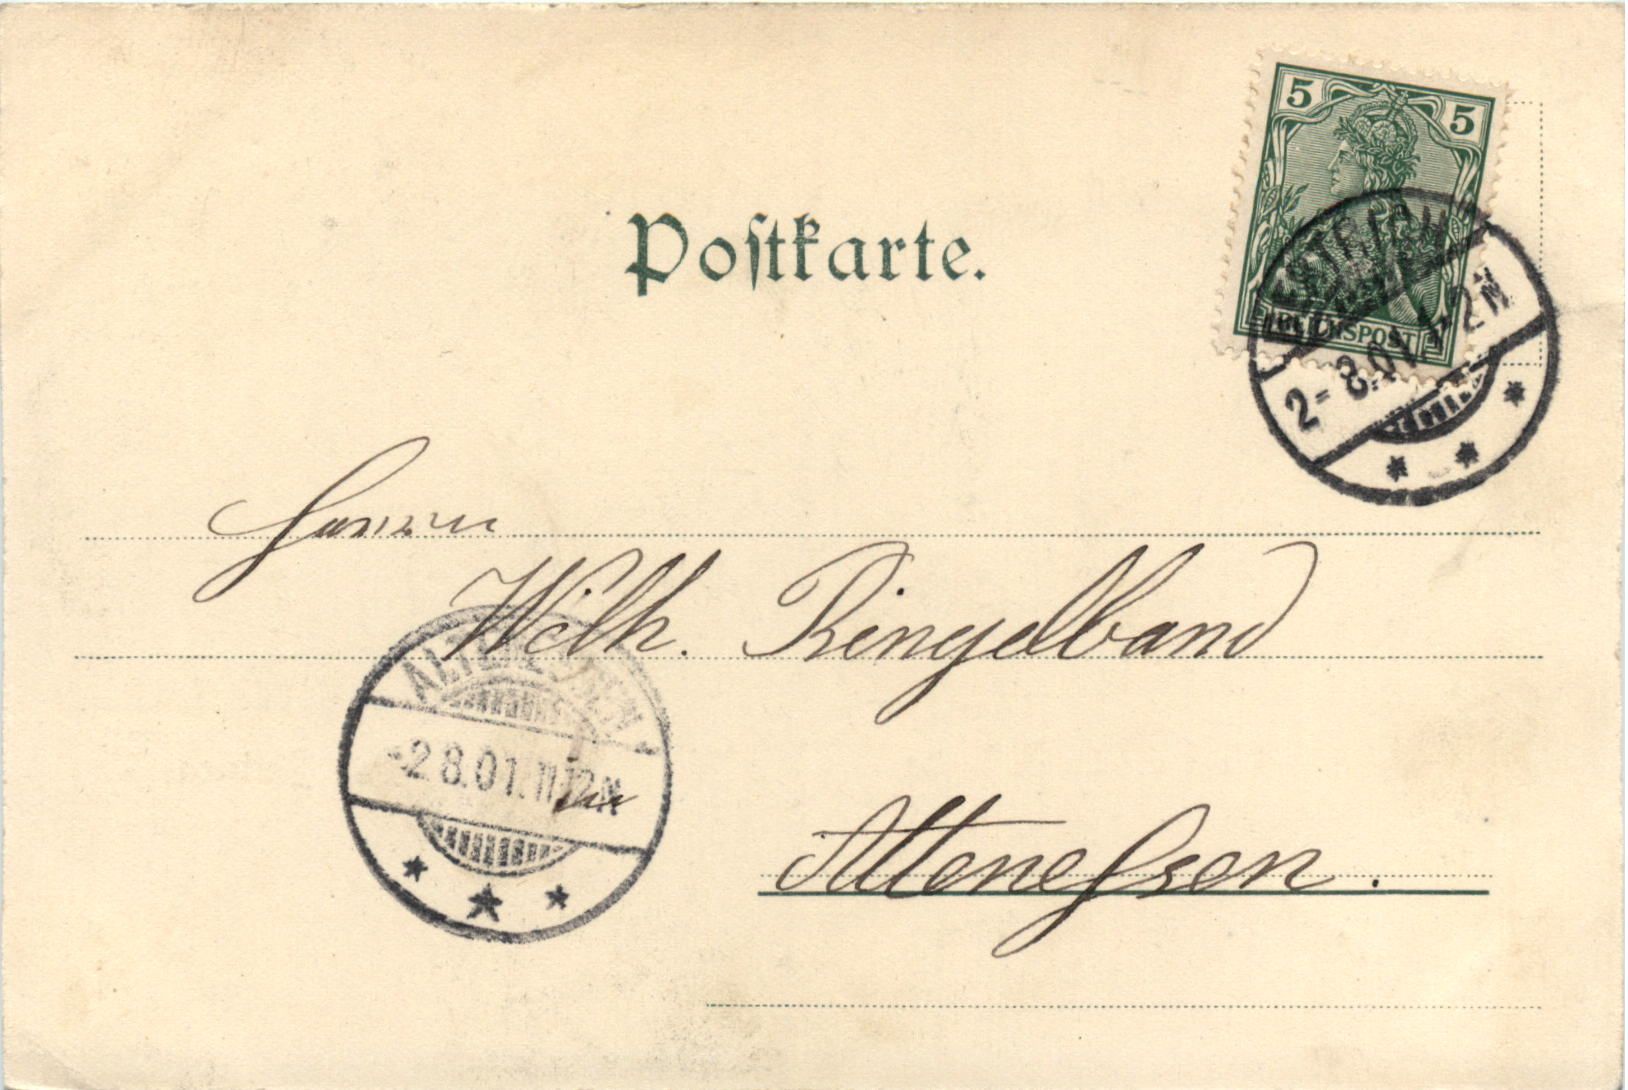 5 5
REICHSPOST
2-8.01. 1-2N
Postkarte.
Herrn
Wilh. Ringelband
ALTENESSEN
-2 8.01. 11-12N
in
Altenessen.